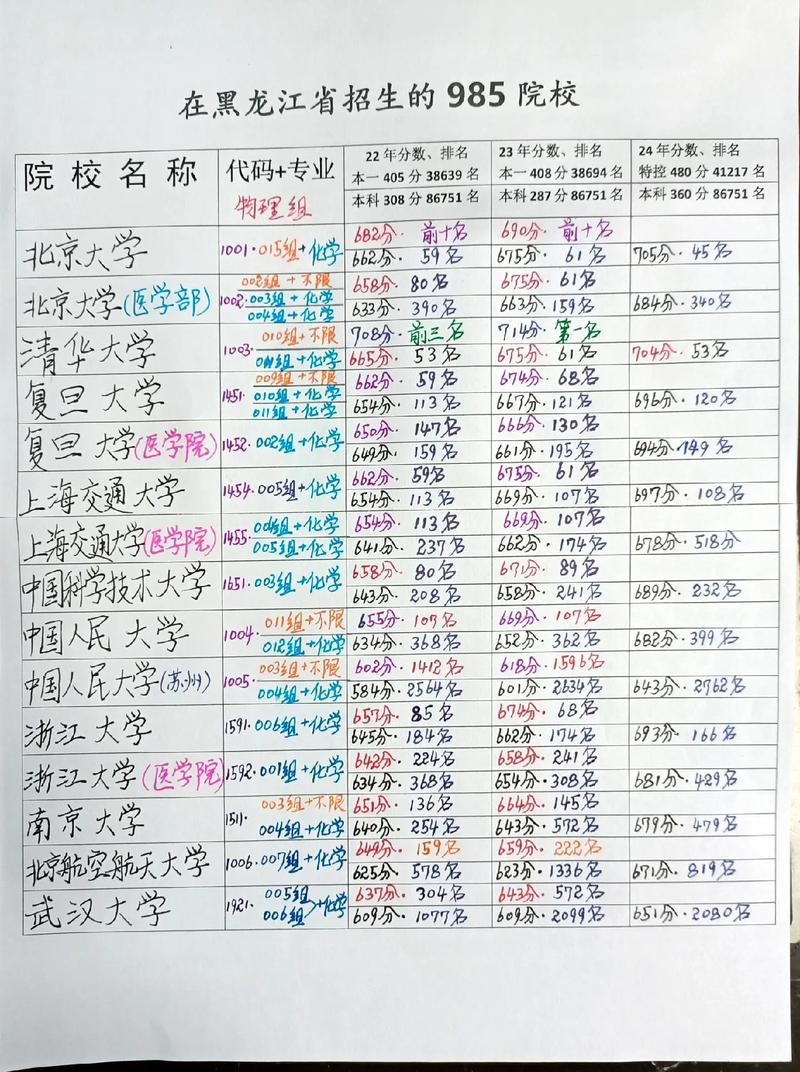 在黑龙江省招生的 985 院校
院校名称 代码+专业 22 年分数、排名 23 年分数、排名 24 年分数、排名
物理组 本一 405 分 38639 名 本一 408 分 38694 名 特控 480 分 41217 名
本科 308 分 86751 名 本科 287 分 86751 名 本科 360 分 86751 名
北京大学 1001·015组+化学 682分· 前十名 690分· 前十名
662分· 59名 675分· 61名 705分· 45名
北京大学(医学部) 1002· 002组+不限 658分· 80名 675分· 61名
003组+化学
004组+化学 633分· 390名 663分· 159名 684分· 340名
清华大学 1003· 010组+不限 708分· 前三名 714分· 第一名
011组+化学 665分· 53名 675分· 61名 704分· 53名
复旦大学 1451· 009组+不限 662分· 59名 674分· 68名
010组+化学
011组+化学 654分· 113名 667分· 121名 696分· 120名
复旦大学(医学院) 1452·002组+化学 650分· 147名 666分· 130名
649分· 159名 661分· 195名 694分· 149名
上海交通大学 1454·005组+化学 662分· 59名 675分· 61名
654分· 113名 669分· 107名 697分· 108名
上海交通大学(医学院) 1455· 004组+化学 654分· 113名 669分· 107名
005组+化学 641分· 237名 662分· 174名 678分· 518分
中国科学技术大学 1651·003组+化学 658分· 80名 671分· 89名
643分· 208名 658分· 241名 689分· 232名
中国人民大学 1004· 011组+不限 655分· 107名 669分· 107名
012组+化学 634分· 368名 652分· 362名 682分· 399名
中国人民大学(苏州) 1005· 003组+不限 602分· 1412名 618分· 1596名
004组+化学 584分· 2564名 601分· 2634名 643分· 2762名
浙江大学 1591·006组+化学 657分· 85名 674分· 68名
645分· 184名 662分· 174名 693分· 166名
浙江大学(医学院) 1592·001组+化学 642分· 224名 658分· 241名
634分· 368名 654分· 308名 681分· 429名
南京大学 1511· 003组+不限 651分· 136名 664分· 145名
004组+化学 640分· 254名 643分· 572名 679分· 479名
北京航空航天大学 1006·007组+化学 649分· 159名 659分· 222名
625分· 578名 623分· 1336名 671分· 819名
武汉大学 1921· 005组 637分· 304名 643分· 572名
006组 +化学 609分· 1077名 609分· 2099名 651分· 2080名